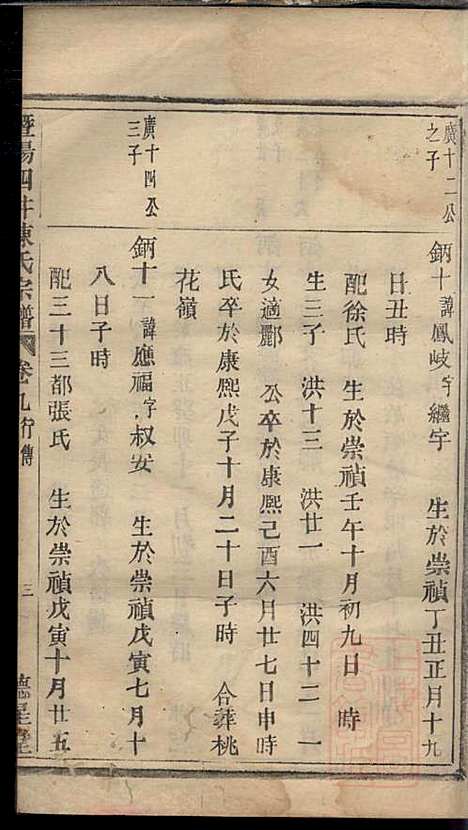 廣十二公
之子
鈵十諱鳳岐字繼宇 生於崇禎丁丑正月十九
日丑時
配徐氏 生於崇禎壬午十月初九日 時
生三子 洪十三 洪廿一 洪四十二 一
女適酈 公卒於康熙己酉六月廿七日申時
氏卒於康熙戊子十月二十日子時 合葬桃
花嶺
廣十四公
三子
鈵十一諱應福字叔安 生於崇禎戊寅七月十
八日子時
配三十三都張氏 生於崇禎戊寅十月廿五
暨陽四井陳氏宗譜 卷九行傳 三 德星堂